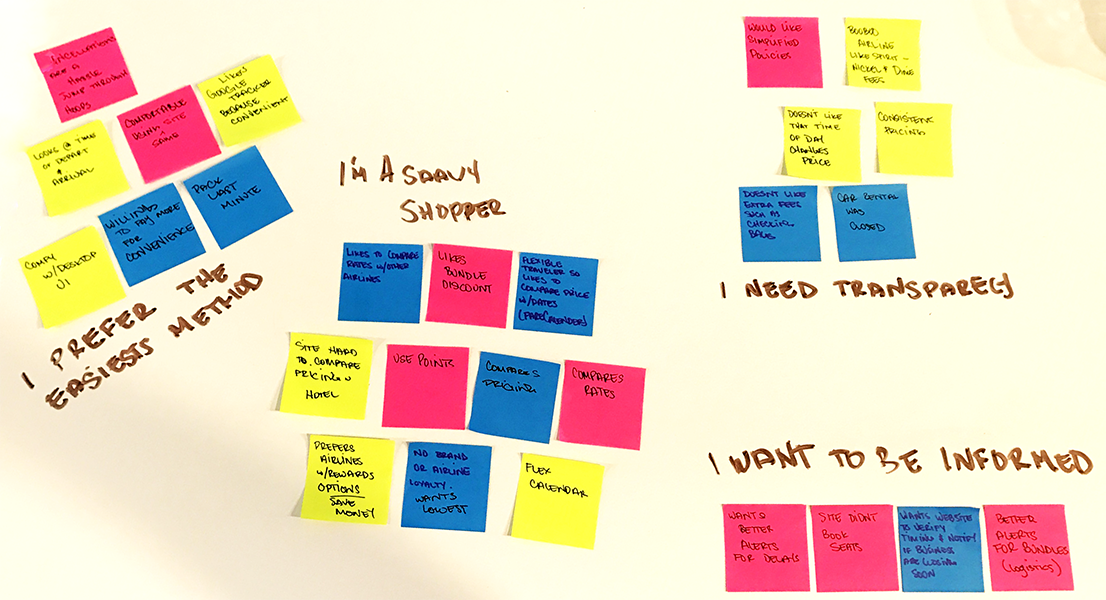 CANCELLATIONS
ARE A
HASSLE
JUMP THROUGH
HOOPS
LIKES
GOOGLE
TRACKER
BECAUSE
CONVENIENT
COMFORTABLE
USING SITE
SAME
LOOKS @ TIME
OF DEPART
&
ARRIVAL
WILLING
TO PAY MORE
FOR
CONVENIENCE
PACK
LAST
MINUTE
COMFY
W/DESKTOP
UI
I PREFER THE
EASIESTS METHOD
I'M A SAAVY
SHOPPER
LIKES TO COMPARE
RATES W/OTHER
AIRLINES
LIKES
BUNDLE
DISCOUNT
FLEXIBLE
TRAVELER SO
LIKES TO
COMPARE PRICE
W/DATES
(FARECALENDER)
SITE HARD
TO COMPARE
PRICING
HOTEL
USE POINTS
COMPARES
PRICING
COMPARES
RATES
PREFERS
AIRLINES
W/REWARDS
OPTIONS
SAVE
MONEY
NO BRAND
OR AIRLINE
LOYALTY.
WANTS
LOWEST
FLEX
CALENDAR
WOULD LIKE
SIMPLIFIED
POLICIES
BOOBOO
AIRLINE
LIKE SPIRIT -
NICKEL & DIME
FEES
DOESN'T LIKE
THAT TIME
OF DAY
CHANGES
PRICE
CONSISTENT
PRICING
DOESN'T LIKE
EXTRA FEES
SUCH AS
CHECKING
BAGS
CAR RENTAL
WAS
CLOSED
I NEED TRANSPARECY
I WANT TO BE INFORMED
WANTS
BETTER
ALERTS
FOR DELAYS
SITE DIDN'T
BOOK
SEATS
WANTS WEBSITE
TO VERIFY
TIMING & NOTIFY
IF BUSINESS
ARE CLOSING
SOON
BETTER
ALERTS
FOR BUNDLES
(logistics)